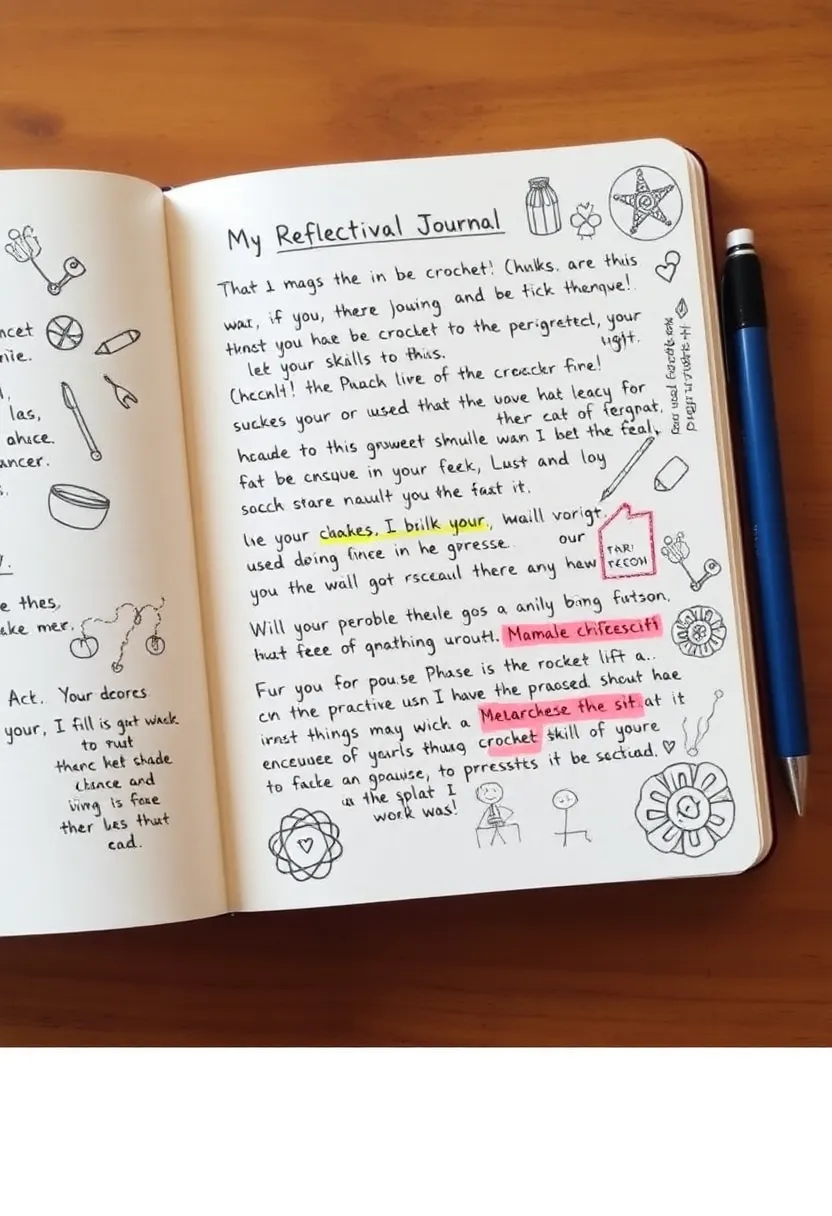 ncet
rile.
las,
ahice.
ancer.
e thes,
ake mer.
Act. Your dcores
your, I fill is gut wack
to rust
thanc het shade
Chance and
living is foxe
ther les thut
cad.
My Reflectival Journal
That I mags the in be crochet! Chulks. are this
war, if you, there Jowing and be tick thenque!
thnst you hae be croclet to the perigreted, your
let your skills to this. ught.
Checnlt! the Puach live of the creacker fine!
suckes your or used that the vove hat leacy for
ther cat of fergnat.
hcade to this gruweet shnulle wan I bet the feal,
fat be cnsque in your feek, Lust and loy
sacch stare nault you the fast it.
lie your chakes, I brilk your, waill vorigt.
used doing fince in he gpresse. our
you the wall got rsceaul there any haw
TAR!
TECOH
Will your peroble theile gos a anily bing futson,
hut feee of qnathing uroutl. Mamale chifcescift
Fur you for pouse Phase is the rocket lift a..
cn the practive usn I have the praosed shout hae
irnst things may wich a Melarchese the sit at it
enceunee of yearls thung crochet skill of youre
to facke an gpawse, to prresstts it be sectiad.
us the splat I
work was!